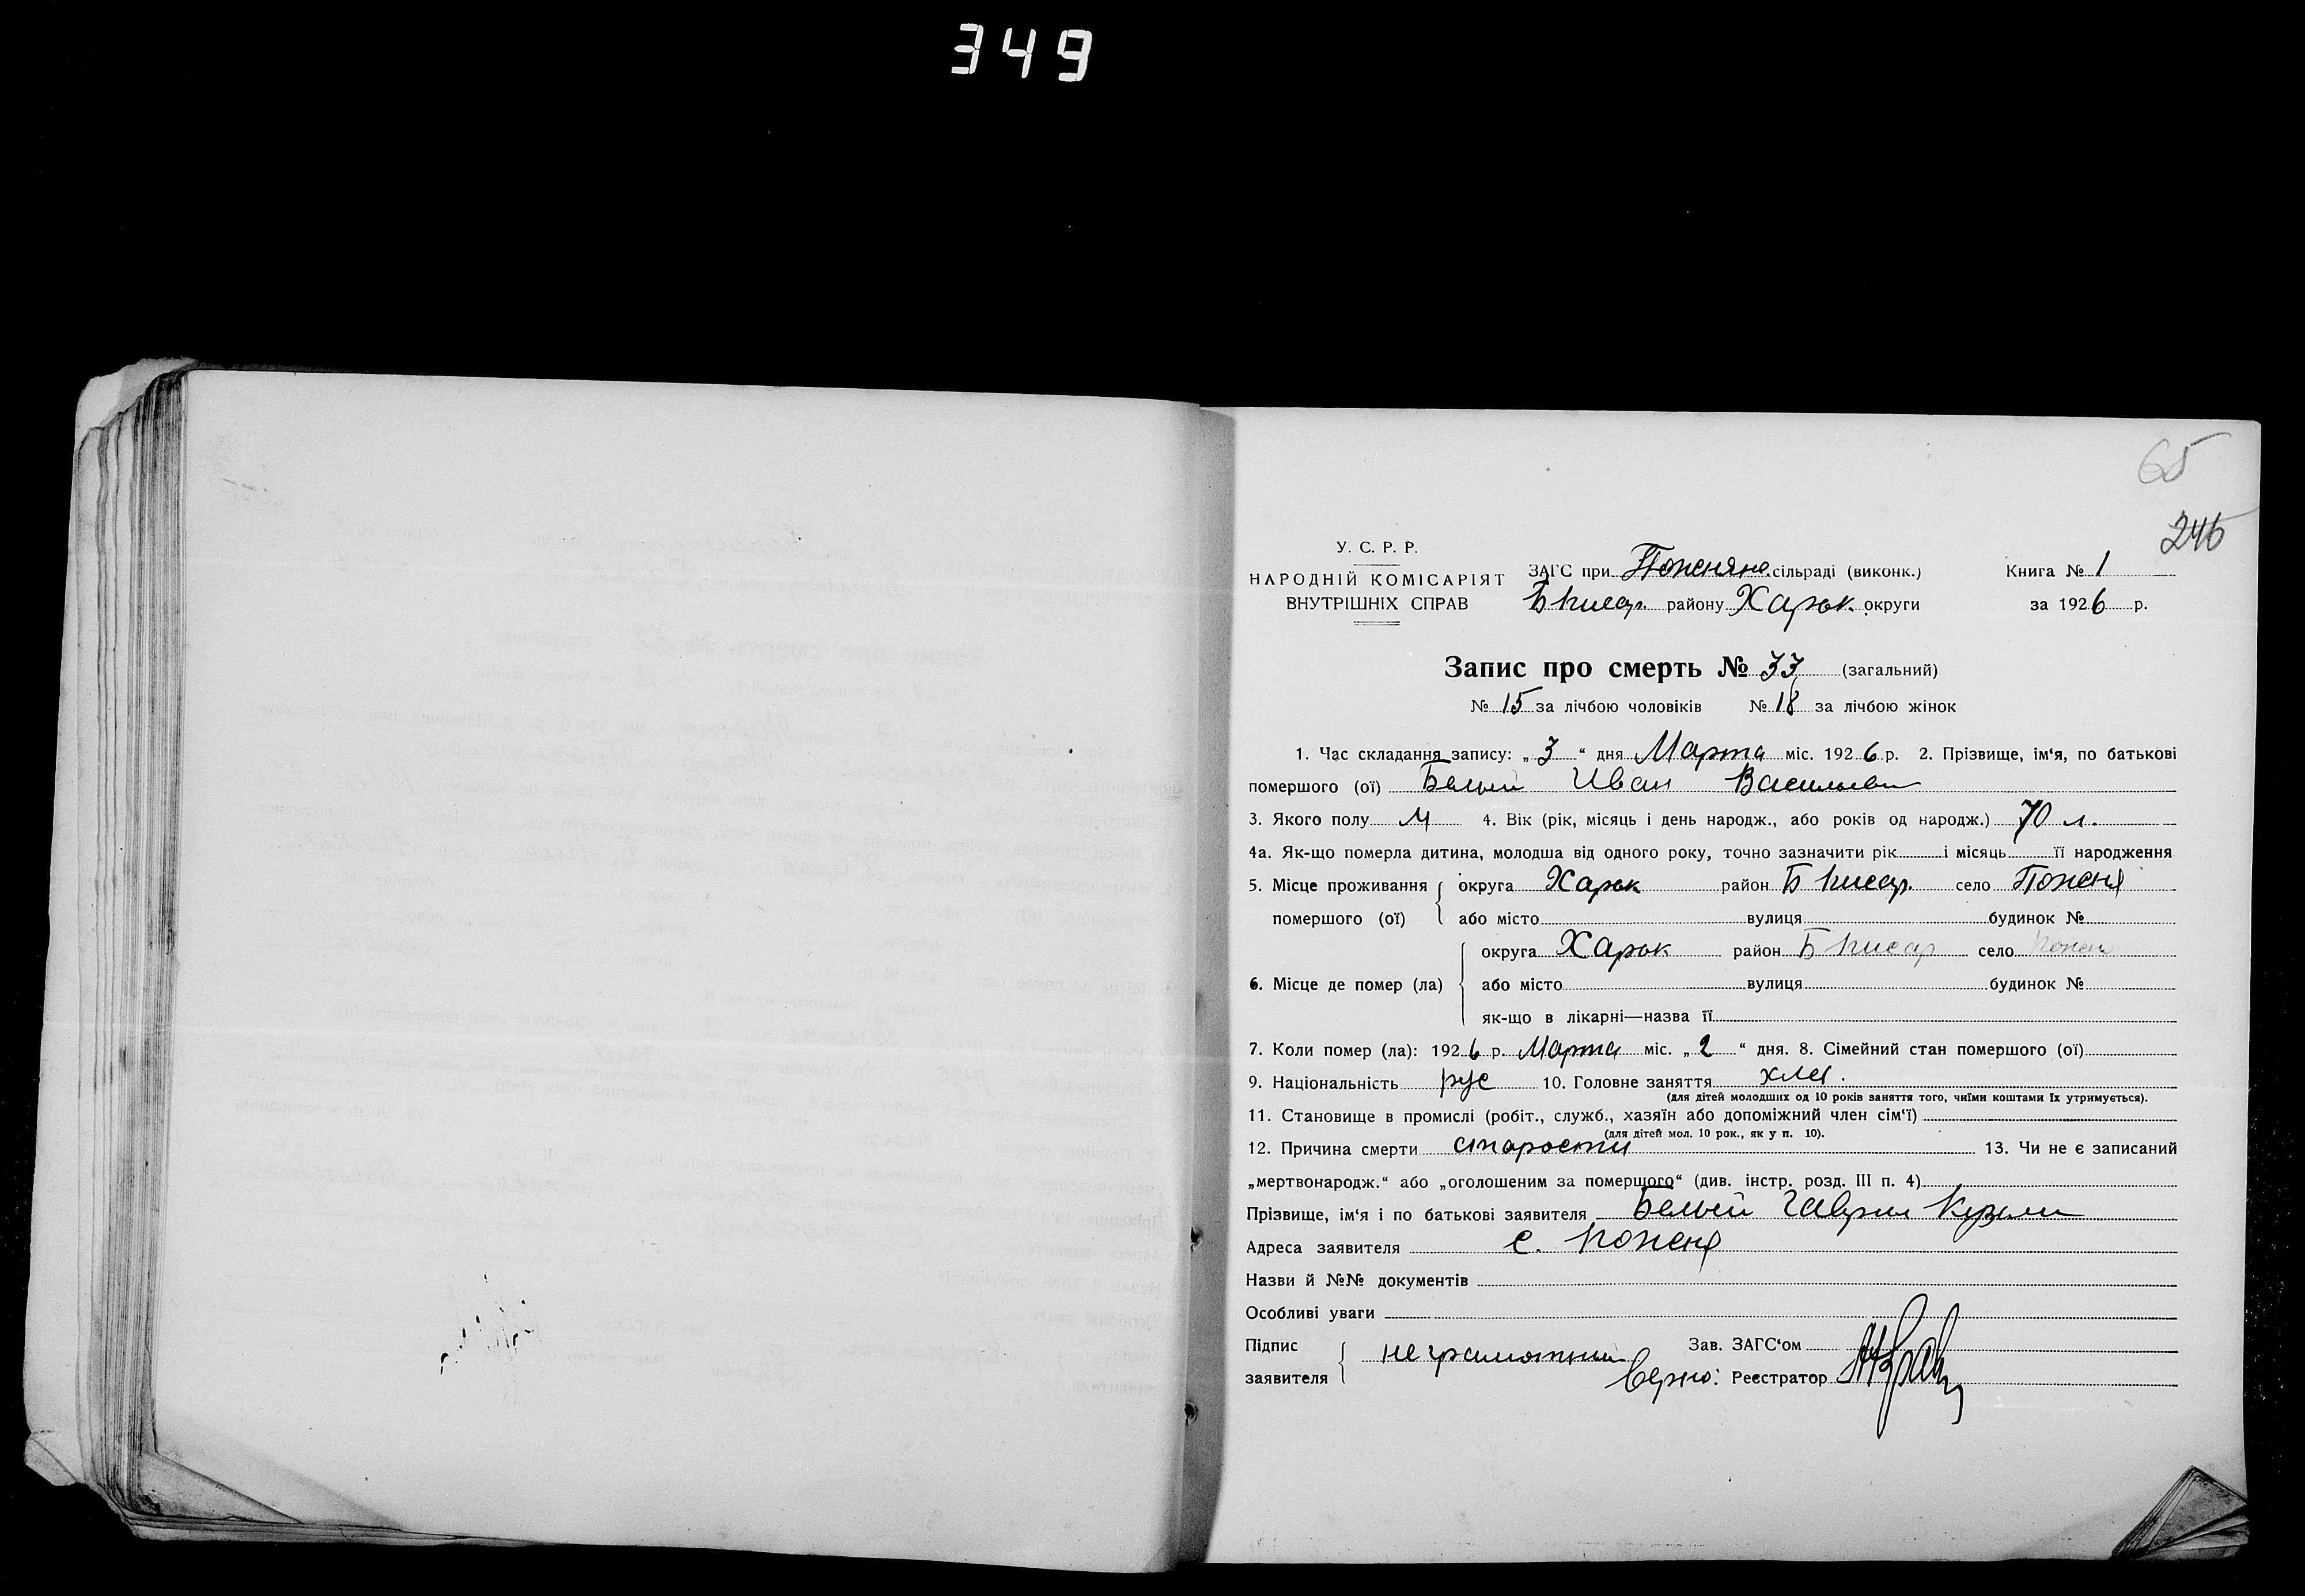 349
65
246
У. С. Р. Р.
НАРОДНІЙ КОМІСАРІЯТ
ВНУТРІШНІХ СПРАВ
ЗАГС при Пожняно сільраді (виконк.)
Б Писар. району Харьк. округи
Книга № 1
за 1926 р.
Запис про смерть № 33 (загальний)
№ 15 за лічбою чоловіків № 18 за лічбою жінок
1. Час складання запису: „3“ дня Марта міс. 1926 р. 2. Прізвище, ім‘я, по батькові
помершого (ої) Белый Иван Васильеви
3. Якого полу М 4. Вік (рік, місяць і день народж., або років од народж.) 70 л.
4а. Як-що померла дитина, молодша від одного року, точно зазначити рік і місяць її народження
5. Місце проживання помершого (ої) округа Харьк район Б Писар. село Пожня
або місто вулиця будинок №
6. Місце де помер (ла) округа Харьк район Б Писар село Пожн
або місто вулиця будинок №
як-що в лікарні—назва її
7. Коли помер (ла): 1926 р. Марта міс. „2“ дня. 8. Сімейний стан помершого (ої)
9. Національність рус 10. Головне заняття хлеб.
(для дітей молодших од 10 років заняття того, чиїми коштами їх утримується).
11. Становище в промислі (робіт., служб., хазяїн або допоміжний член сім‘ї)
(для дітей мол. 10 рок., як у п. 10).
12. Причина смерти старости 13. Чи не є записаний
„мертвонародж.“ або „оголошеним за померщого“ (див. інстр. розд. III п. 4)
Прізвище, ім‘я і по батькові заявителя Белый Гаврил
Адреса заявителя с. Пожня
Назви й №№ документів
Особливі уваги
Підпис заявителя неграмотный Зав. ЗАГС‘ом
Верно: Реєстратор